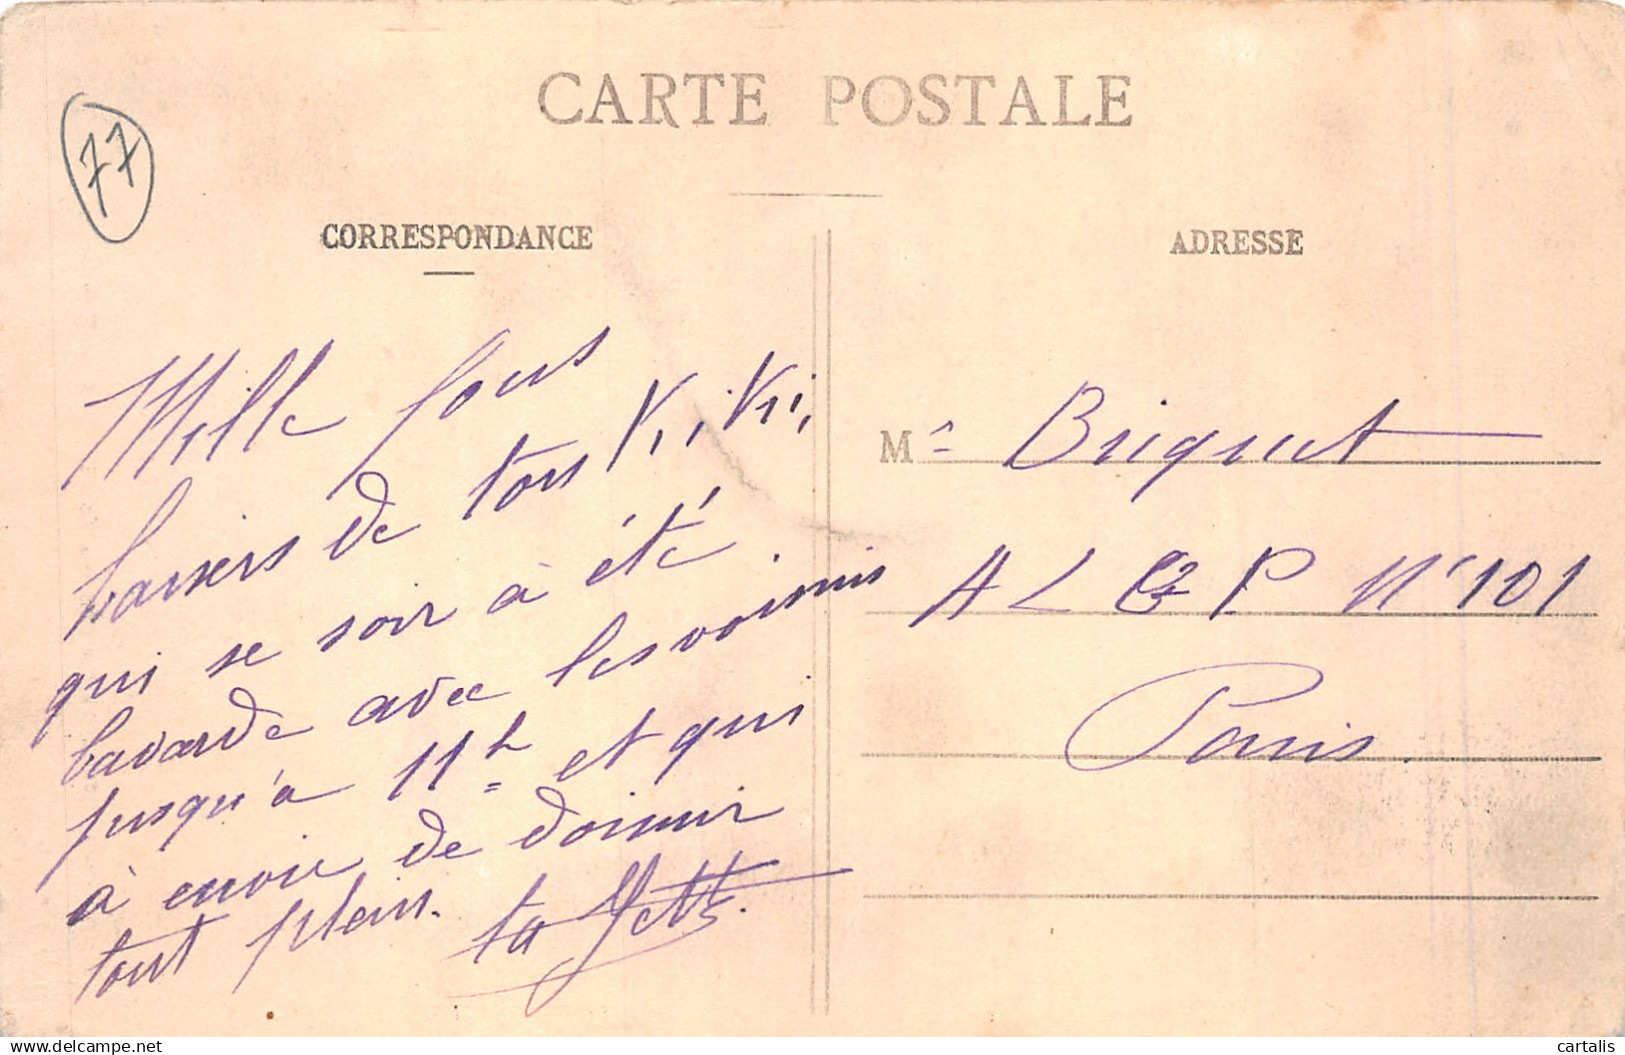 CARTE POSTALE
77
CORRESPONDANCE
ADRESSE
Mille fous
baisers de ton Ki, Ki,
qui se soir à été
bavarde avec les voisins
jusqu'à 11h et qui
à envie de dormir
tout plein. ta
Mr Briquet
A L G P N° 101
Paris.
delcampe.net
cartalis